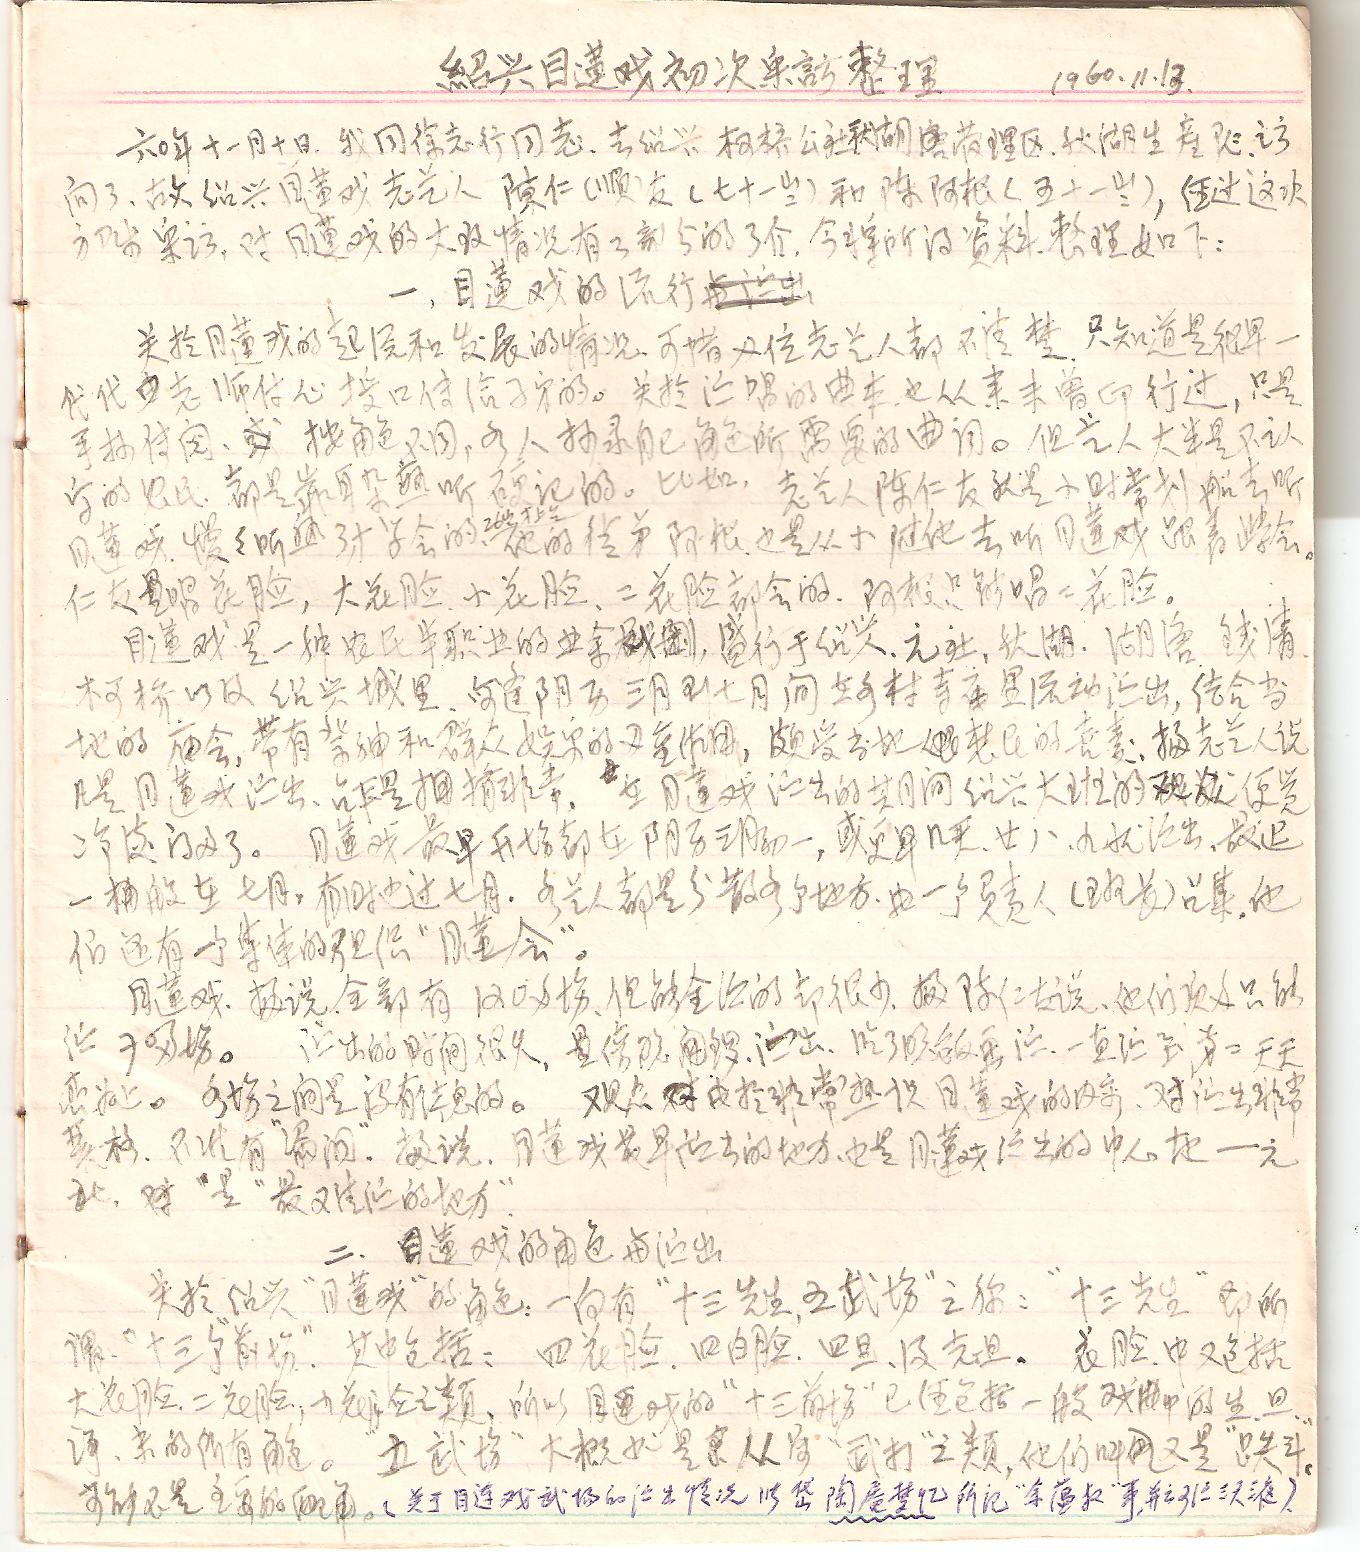 紹兴目蓮戏初次采訪整理 1960.11.13.
六〇年十一月十日、我同徐志行同志、去绍兴柯桥公社秋湖管理区、秋湖生产队、访
问了、故绍兴目蓮戏老艺人陳仁(順)友(七十一岁)和陈阿根(五十一岁),经过这次
采访,对目蓮戏的大致情况有了部分的了介,今将所得资料、整理如下:
一、目蓮戏的流行
关於目蓮戏的起源和发展的情况、可惜双位老艺人都不清楚、只知道是很早一
代代由老师付心授口传给子弟的。关於演唱的曲本也从来未曾印行过,只是
手抄传阅、按角色不同,各人抄录自己角色所需要的曲词。但艺人大半是不认
字的农民、都是靠耳朵熟听硬记的。比如、老艺人陈仁友就是小时常划船去听
目蓮戏、慢慢听熟了才学会的、他的徒弟阿根也是从小随他去听目蓮戏跟着学会。
仁友是唱花脸,大花脸、小花脸、二花脸都会的、阿根只能唱二花脸。
目蓮戏是一种农民半职业的业余戏剧,盛行于绍兴、元社,秋湖、湖塘、钱清、
柯桥以及绍兴城里、每逢阴历三月到七月间在各村寺庙里流动演出,结合当
地的庙会,带有祭神和群众娱乐的双重作用,颇受当地农民的喜爱、据老艺人说
凡是目蓮戏演出、台下是拥挤非常、在目蓮戏演出的其间绍兴大班的观众便觉
冷淡的多了。 目蓮戏最早开场都在阴历三月初一,或更早几天、廿八、九就演出、最迟
一般在七月,有时也过七月。各艺人都是分散各个地方、由一个负责人(班长)召集、他
们还有一个集体的组织“目蓮会”。
目蓮戏、据说全部有 场、但能全演的却很少、据陈仁友说、他们顶多只能
演 场。 演出的时间很久,是傍晚 演出、吃了晚飯再演、一直演到第二天天
亮为止。 各场之间是没有休息的。 观众对於非常熟识目蓮戏的内容、对演出非常
严格、不准有“漏洞”。据说、目蓮戏最早演出的地方、也是目蓮戏演出的中心地——元
社、 “是”最难演的地方”。
二、目蓮戏的角色与演出
关於绍兴“目蓮戏”的角色:一向有“十三先生,五武场”之称:“十三先生”即所
谓“十三个前场”、其中包括: 四花脸、四白脸、四旦、及老旦。 花脸、中又包括
大花脸、二花脸、小花脸之类、所以目蓮戏的“十三前场”已经包括一般戏曲中的生、旦、
净、末的所有角色。“五武场”大概是 从事“武打”之类,他们叫
可能不是主要的角。(关于目连戏武场的演出情况张岱陶庵梦忆所记“余蕴叔”事